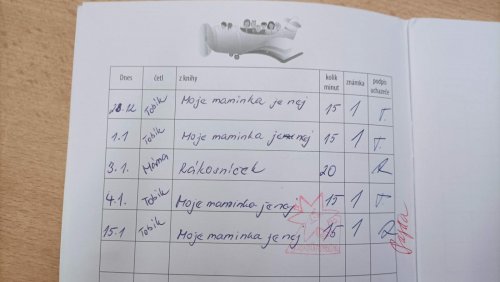 Dnes četl z knihy kolik minut známka podpis uchazeče
28.12 Tobík Moje maminka je nej 15 1 T.
1.1 Tobík Moje maminka je nej 15 1 T.
3.1. Máma Rákosníček 20
4.1. Tobík Moje maminka je nej 15 1 T
15.1 Tobík Moje maminka je nej 15 1